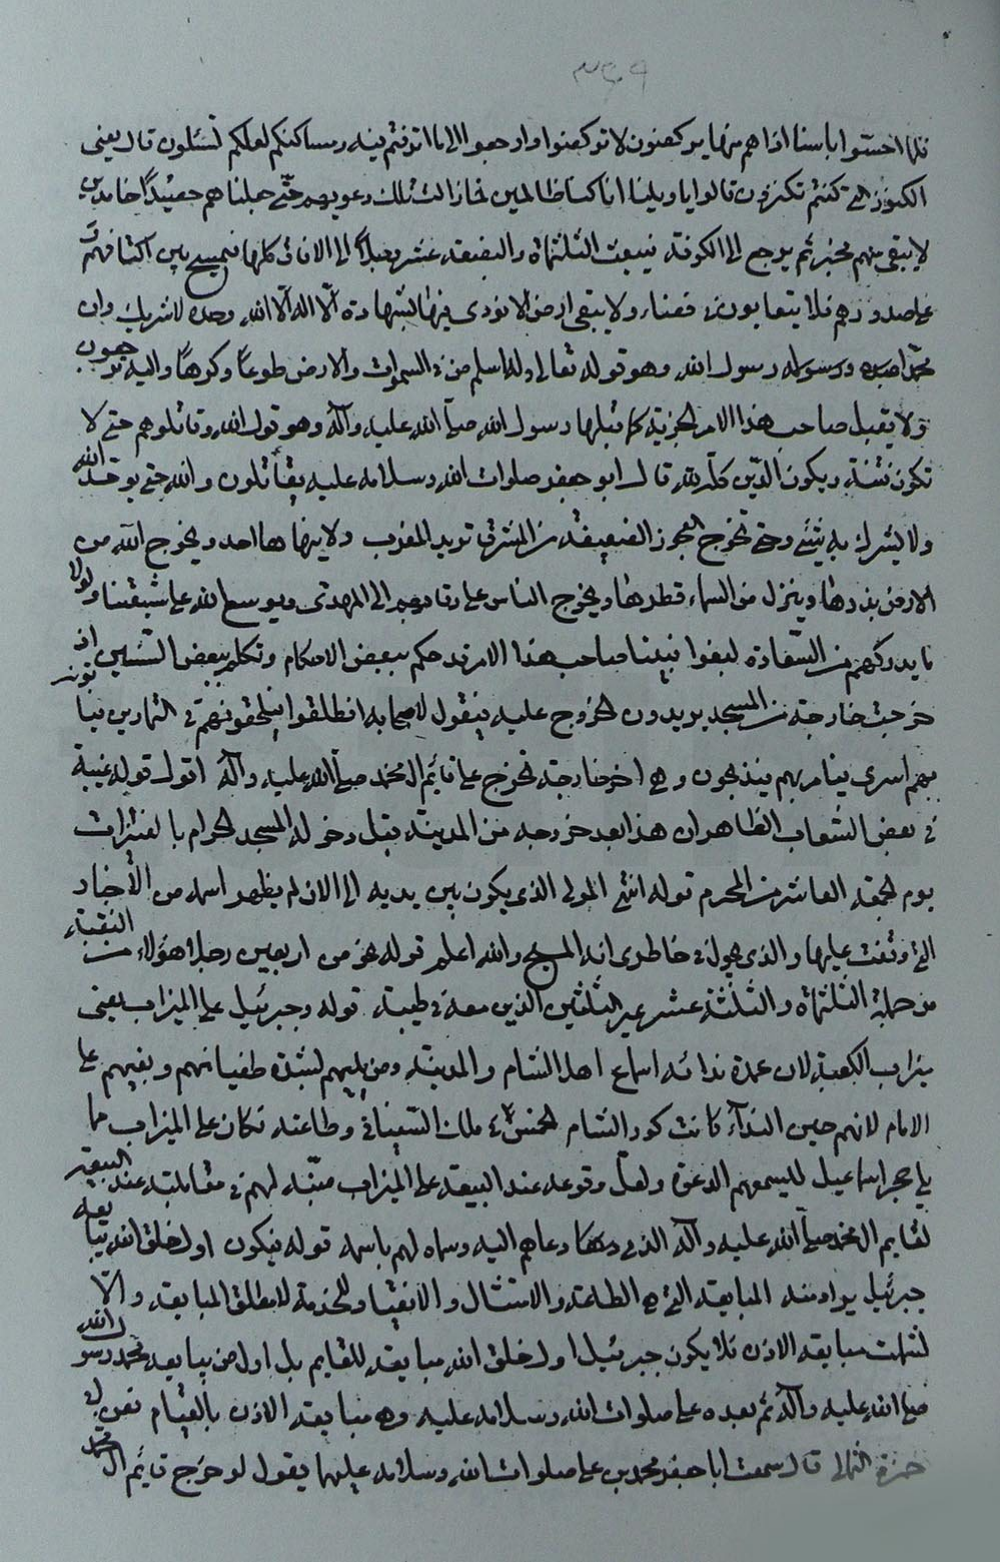 فلما احسوا باسنا اذا هم منها يركضون لا تركضوا وارجعوا الى ما اترفتم فيه ومساكنكم لعلكم تسئلون قال يعنى
الكنوز التى كنتم تكنزون قالوا يا ويلنا انا كنا ظالمين فما زالت تلك دعويهم حتى جعلناهم حصيدًا خامدين
لا يبقى منهم مخبر ثم يرجع الى الكوفة فيبعث الثلثمائة والبضعة عشر رجلاً الى الافاق كلها فيمسح بين اكتافهم و
على صدورهم فلا يتعايون فى قضاء ولا يبقى ارض الا نودى فيها شهادة ان لا اله الا الله وحده لا شريك له وان
محمدا رسول الله وهو قوله تعالى وله اسلم من فى السموات والارض طوعًا وكرهًا واليه ترجعون
ولا يقبل صاحب هذا الامر الجزية كما قبلها رسول الله صلى الله عليه وآله وهو قول الله وقاتلوهم حتى لا
تكون فتنة ويكون الدين كله لله قال ابو جعفر صلوات الله وسلامه عليه يقاتلون والله حتى يوحد الله
ولا يشرك به شئ وحتى تخرج العجوز الضعيفة من المشرق تريد المغرب ولا ينهاها احد ويخرج الله من
الارض بذرها وينزل من السماء قطرها ويخرج الناس على رقابهم الى المهدى ويوسع الله على شيعتنا ولولا
ما يدركهم من السعادة لبغوا فبينا صاحب هذا الامر قد حكم ببعض الاحكام وتكلم ببعض السنن اذ
خرجت خارجة من المسجد يريدون الخروج عليه فيقول لاصحابه انطلقوا فيلحقونهم فى التمارين فيا
بهم اسرى فيامر بهم فيذبحون وهى اخر خارجة تخرج على قائم ال محمد صلى الله عليه وآله اقول قوله غيبة
فى بعض الشعاب الظاهر ان هذا بعد خروجه من المدينة قبل دخوله المسجد الحرام بالعنيزات
يوم الجمعة العاشر من المحرم قوله انتهى المولى الذى يكون بين يديه الى الان لم يظهر اسمه من الأخبار
التى وقفت عليها والذى يجول فى خاطرى انه المسيح والله اعلم قوله نحو من اربعين رجلا هؤلاء من النقباء
من جملة الثلثمائة والثلثة عشر غير الثلثين الذين معه فى طيبة قوله وجبرئيل على الميزاب يعنى
ميزاب الكعبة لان عمدة ندائه اسماع اهل الشام والمدينة ومن يليهم لشدة طغيانهم وبغيهم على
الامام لانهم حين النداء كانت كور الشام الخمس فى ملك السفيانى وطاعته فكان على الميزاب مما
يلى حجر اسماعيل ليسمعهم الدعوة ولعل وقوعه عند البيعة على الميزاب منبه لهم فى مقابلته عند البيعة
لقايم ال محمد صلى الله عليه وآله الذى دعاهم اليه وسماه لهم باسمه قوله فيكون اول خلق الله يبايعه
جبرئيل يراد منه المبايعة التى هى الطاعة والامتثال والانقياد للخدمة لا مطلق المبايعة والا
لشملت مبايعة الاذن فلا يكون جبرئيل اول خلق الله مبايعة للقايم بل اول من يبايعه محمد رسول الله
صلى الله عليه وآله ثم بعده على صلوات الله وسلامه عليه وهى مبايعة الاذن بالقيام فعن ابى
حمزة الثمالى قال سمعت ابا جعفر محمد بن على صلوات الله وسلامه عليهما يقول لو خرج قايم ال محمد